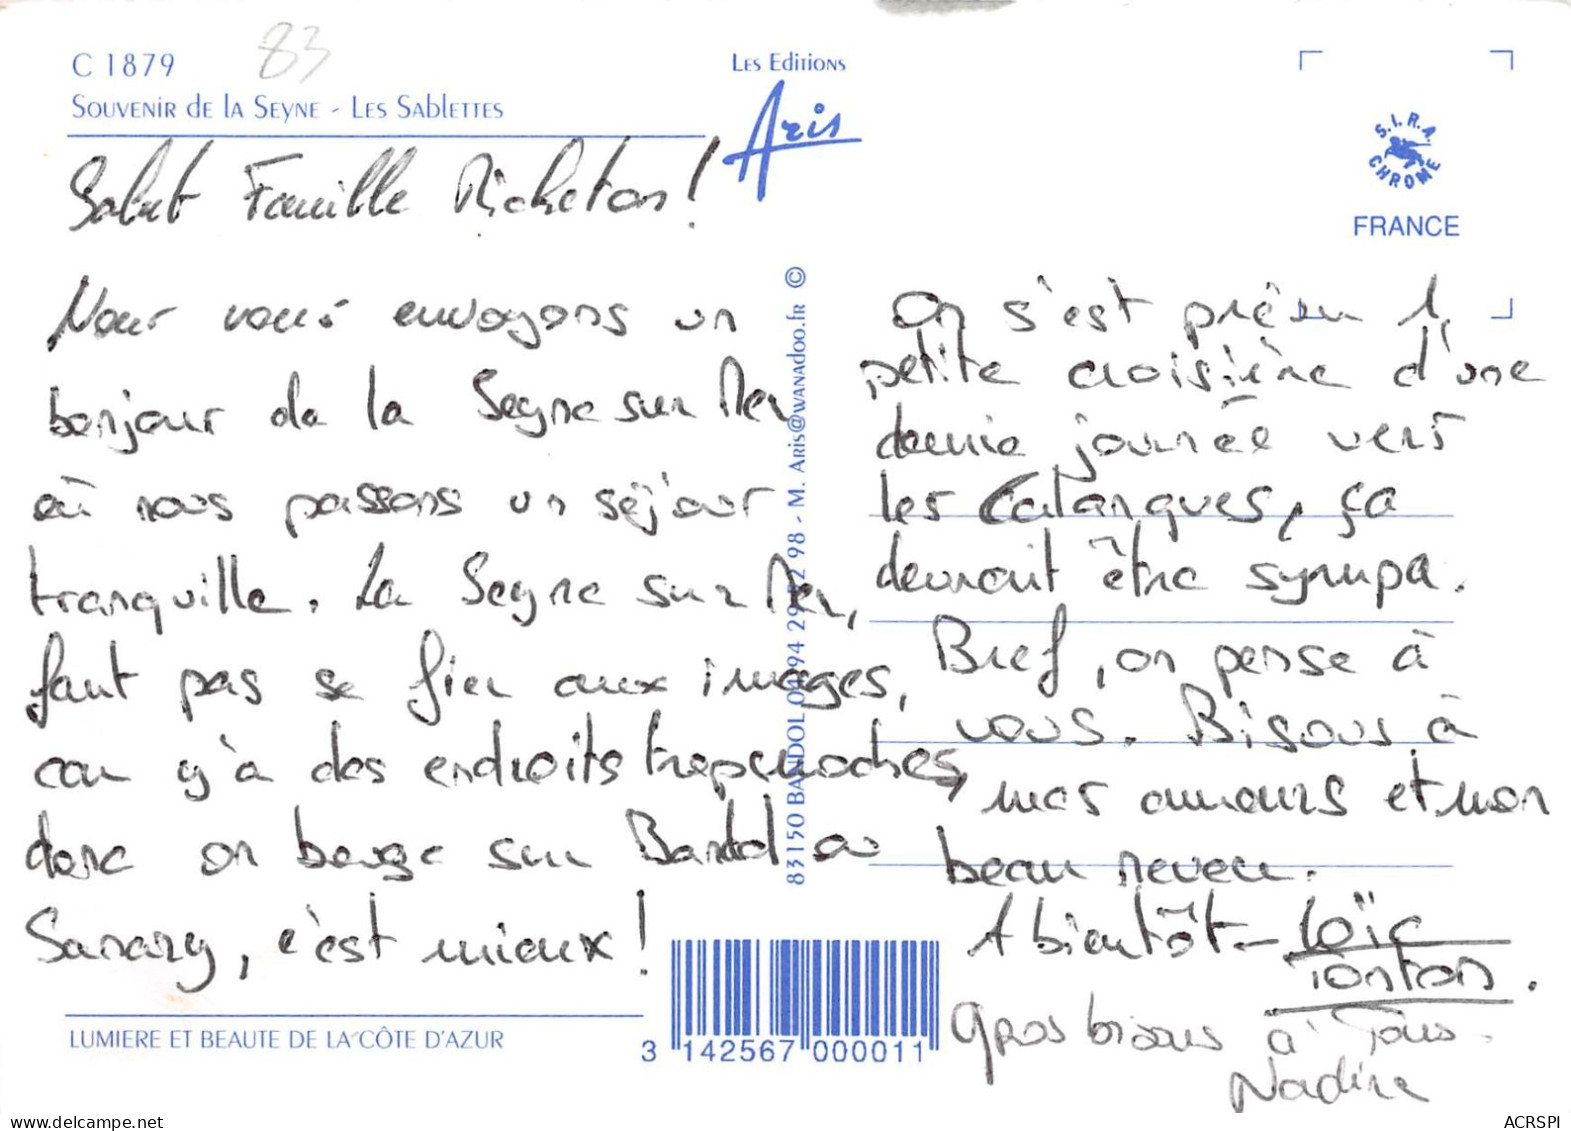 C 1879
83
SOUVENIR dE lA SEYNE - LES SABlETTES
LES EdiTiONS
Aris
S.I.R.A.
CHROME
FRANCE
Salut Famille Richeton !
Nous vous envoyons un
bonjour de la Seyne sur Mer
où nous passons un séjour
tranquille. La Seyne sur Mer,
faut pas se fier aux images,
car y'a des endroits trop moches,
donc on bouge sur Bandol ou
Sanary, c'est mieux !
83150 BANDOL 04 94 29 52 98 - M. Aris@wanadoo.fr ©
On s'est prévu 1
petite croisière d'une
demie journée vers
les Calanques, ça
devrait être sympa.
Bref, on pense à
vous. Bisous à
mes amours et mon
beau neveu.
A bientôt - Loïc
Tonton.
Gros bisous à Tous.
Nadine
LUMIERE ET BEAUTE DE LA CÔTE D'AZUR
3 142567 000011
ACRSPI